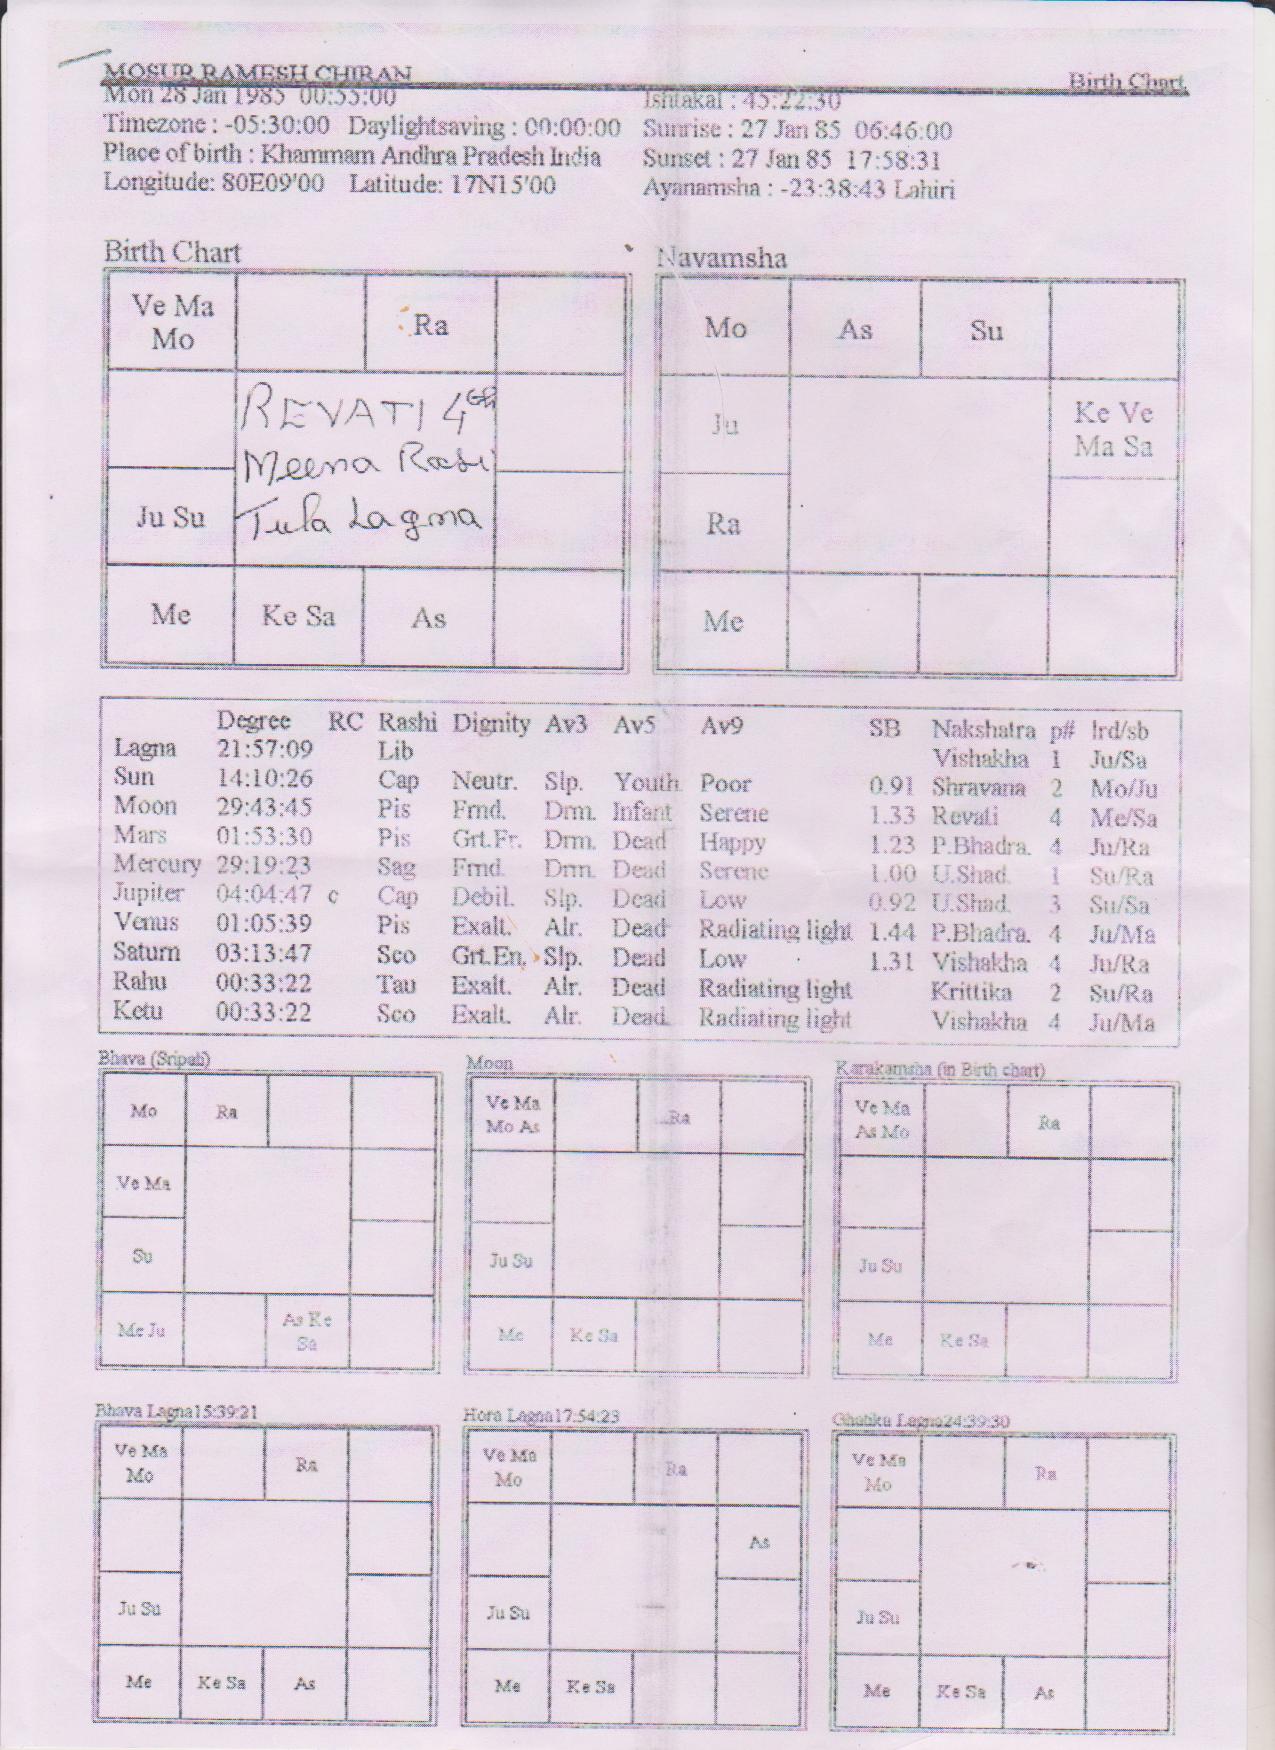 MOSUR RAMESH CHIRAN Birth Chart
Mon 28 Jan 1985 00:55:00 Ishtakal : 45:22:30
Timezone : -05:30:00 Daylightsaving : 00:00:00 Sunrise : 27 Jan 85 06:46:00
Place of birth : Khammam Andhra Pradesh India Sunset : 27 Jan 85 17:58:31
Longitude: 80E09'00 Latitude: 17N15'00 Ayanamsha : -23:38:43 Lahiri
Birth Chart
Ve Ma
Mo
Ra
REVATI 4th
Meena Rasi
Ju Su
Tula Lagna
Me Ke Sa As
Navamsha
Mo As Su
Ju
Ke Ve
Ma Sa
Ra
Me
Degree RC Rashi Dignity Av3 Av5 Av9 SB Nakshatra p# lrd/sb
Lagna 21:57:09 Lib Vishakha 1 Ju/Sa
Sun 14:10:26 Cap Neutr. Slp. Youth Poor 0.91 Shravana 2 Mo/Ju
Moon 29:43:45 Pis Frnd. Drm. Infant Serene 1.33 Revati 4 Me/Sa
Mars 01:53:30 Pis Grt.Fr. Drm. Dead Happy 1.23 P.Bhadra. 4 Ju/Ra
Mercury 29:19:23 Sag Frnd. Drm. Dead Serene 1.00 U.Shad. 1 Su/Ra
Jupiter 04:04:47 c Cap Debil. Slp. Dead Low 0.92 U.Shad. 3 Su/Sa
Venus 01:05:39 Pis Exalt. Alr. Dead Radiating light 1.44 P.Bhadra. 4 Ju/Ma
Saturn 03:13:47 Sco Grt.En. Slp. Dead Low 1.31 Vishakha 4 Ju/Ra
Rahu 00:33:22 Tau Exalt. Alr. Dead Radiating light Krittika 2 Su/Ra
Ketu 00:33:22 Sco Exalt. Alr. Dead Radiating light Vishakha 4 Ju/Ma
Bhava (Sripati)
Mo Ra
Ve Ma
Su
Me Ju
As Ke
Sa
Moon
Ve Ma
Mo As
Ra
Ju Su
Me Ke Sa
Karakamsha (in Birth chart)
Ve Ma
As Mo
Ra
Ju Su
Me Ke Sa
Bhava Lagna15:39:21
Ve Ma
Mo
Ra
Ju Su
Me Ke Sa As
Hora Lagna17:54:23
Ve Ma
Mo
Ra
As
Ju Su
Me Ke Sa
Ghatika Lagna24:39:30
Ve Ma
Mo
Ra
Ju Su
Me Ke Sa As